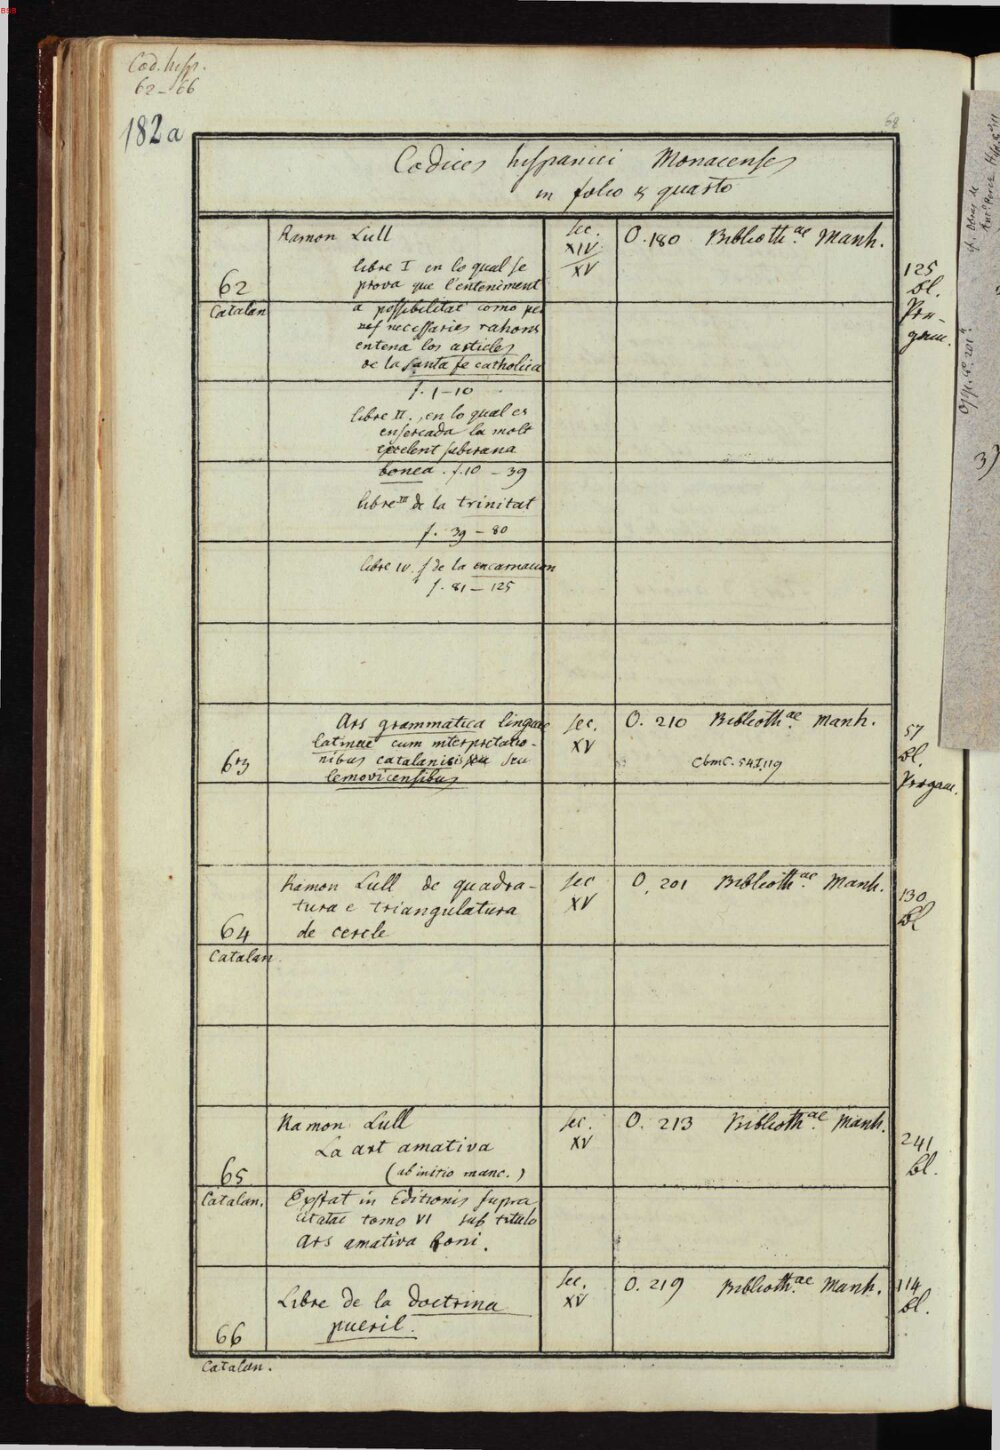 BSB
Cod. hisp.
62-66
182a
68
Codices hispanici Monacenses
in folio & quarto
Ramon Lull
Sec.
XIV
XV
O. 180 Biblioth.ae Manh.
125
bl.
Per-
gam.
62
Catalan
libre I en lo qual se
prova que l'enteniment
a possibilitat como per
necessaries rahons
entena los articles
de la santa fe catholica
f. 1-10
libre II. en lo qual es
ensercada la molt
excelent subirana
bonea. f. 10 - 39
libre III de la trinitat
f. 39 - 80
libre IV. de la encarnacion
f. 81 - 125
63
Ars grammatica linguae
latinae cum interpretatio-
nibus catalanicis seu
lemovicensibus
Sec.
XV
O. 210 Biblioth.ae Manh.
Cbm C. 54I, 119
57
Bl.
Pergam.
64
Catalan
Ramon Lull de quadra-
tura e triangulatura
de cercle
Sec
XV
O. 201 Biblioth.ae Manh.
130
Bl
65
Catalan.
Ramon Lull
La art amativa
(ab initio manc.)
Exstat in Editionis supra
citatae tomo VI sub titulo
Ars amativa boni.
Sec.
XV
O. 213 Biblioth.ae Manh.
241
bl.
66
Catalan.
Libre de la doctrina
pueril.
Sec.
XV
O. 219 Biblioth.ae Manh.
114
bl.
3)